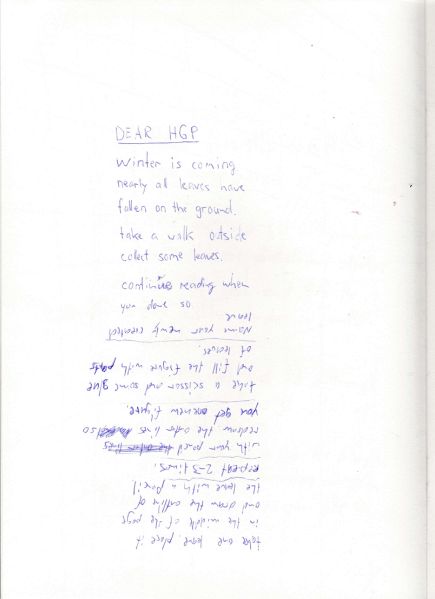 DEAR HGP
Winter is coming
nearly all leaves have
fallen on the ground.
take a walk outside
colect some leaves.
continue reading when
you done so.
take one leave, place it
in the middle of the page
and draw the outline of
the leave with a pencil
repeat 2-3 times.
with your pencil
redraw the outer lines so
you get one new figure.
take a scissor and some glue
and fill the figure with parts
of leaves.
Name your newly created
leave